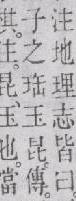 注地理志皆曰
子之珤玉昆。傳
昆、玉也。當